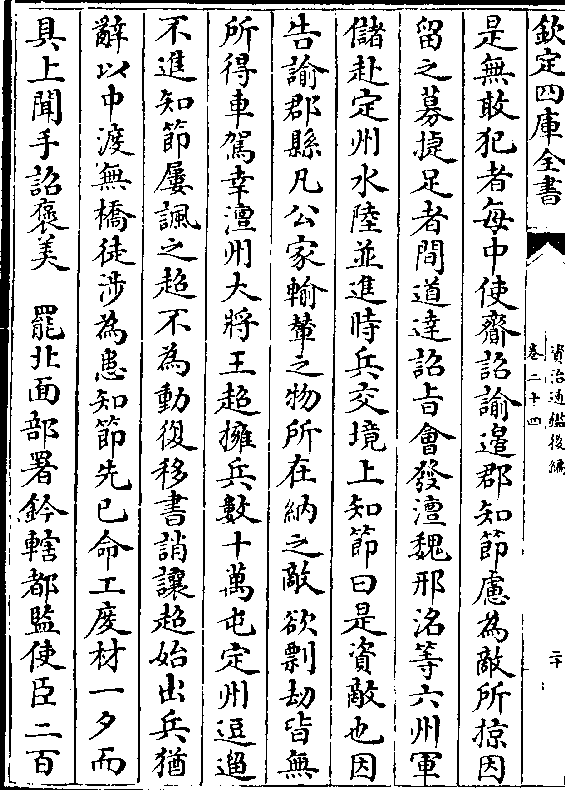 欽定四庫全書
資治通鑑後編
卷二十四
二十
是無敢犯者每中使齎詔諭邉郡知節慮為敵所掠因
留之募㨗足者間道達詔㫖㑹發澶魏邢洺等六州軍
儲赴定州水陸並進時兵交境上知節曰是資敵也因
告諭郡縣凡公家輸輦之物所在納之敵欲剽劫皆無
所得車駕幸澶州大將王超擁兵數十萬屯定州逗遛
不進知節屢諷之超不為動復移書誚讓超始出兵猶
辭以中渡無橋徒涉為患知節先已命工度材一夕而
具上聞手詔褒美　罷北面部署鈐轄都監使臣二百